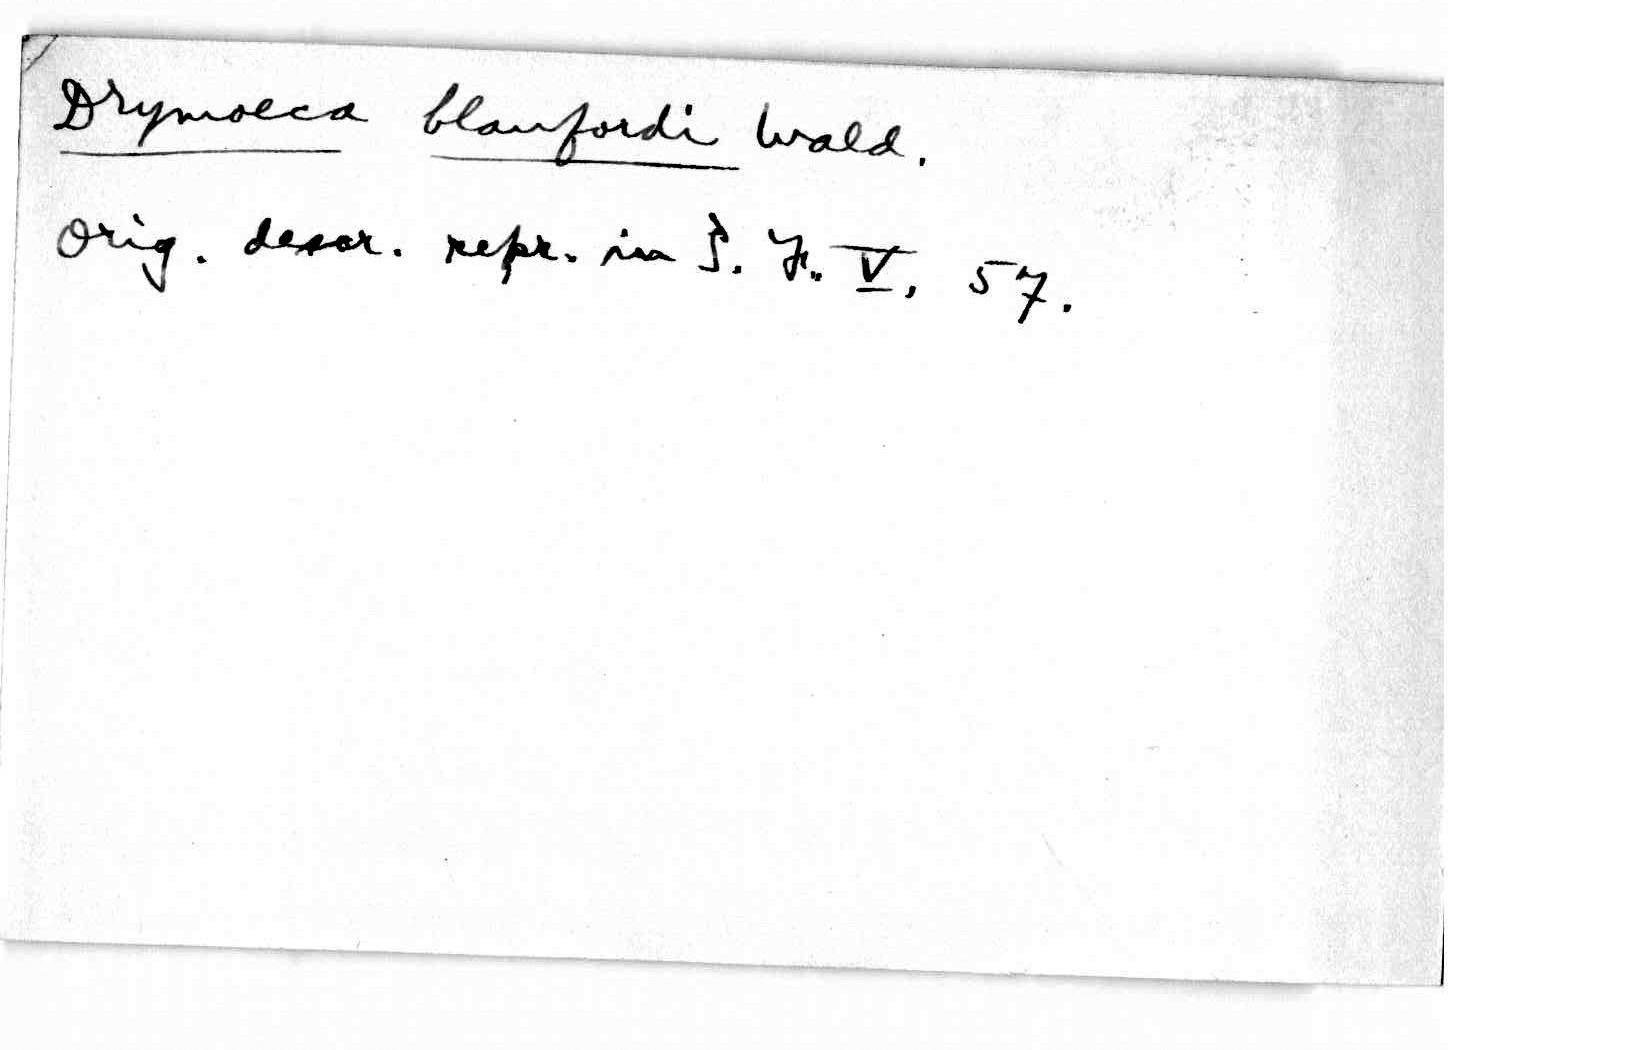 Drymoeca blanfordi Wald.
Orig. descr. repr. in S. F. V, 57.